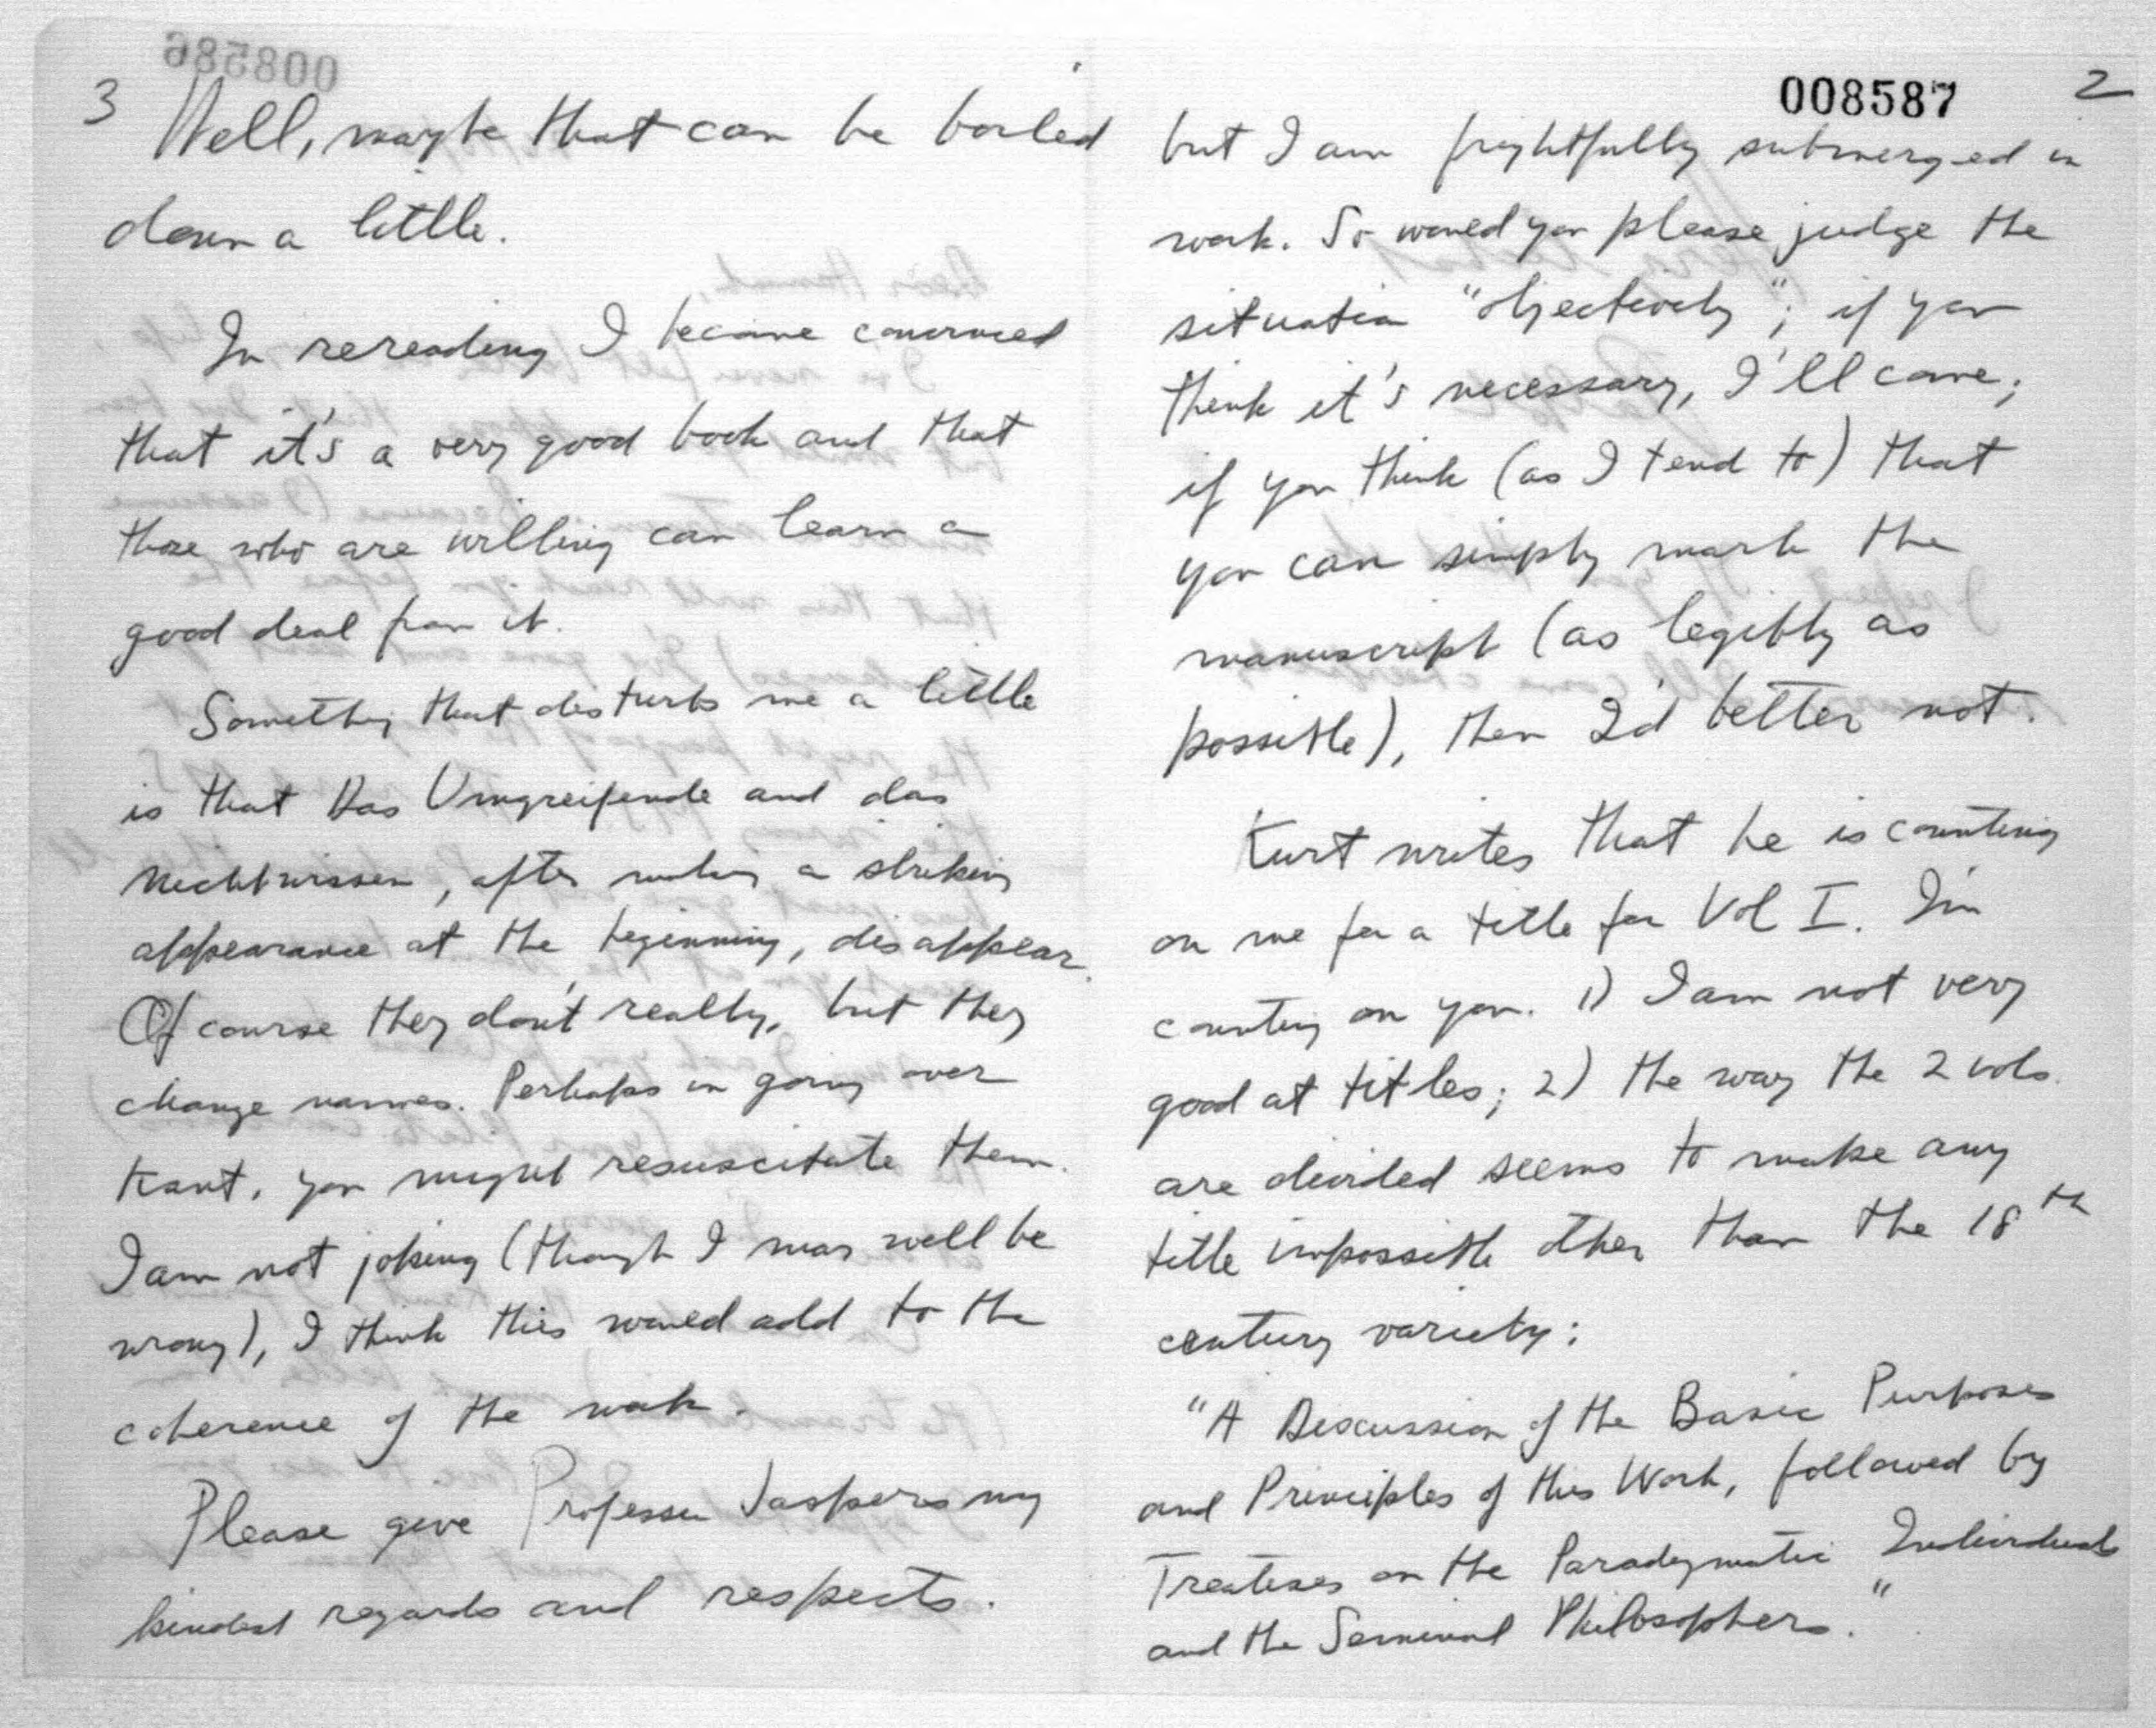 008587 2
but I am frightfully submerged in
work. So would you please judge the
situation "objectively"; if you
think it's necessary, I'll come;
if you think (as I tend to) that
you can simply mark the
manuscript (as legibly as
possible), then I'd better not.
Kurt writes that he is counting
on me for a title for Vol I. I'm
counting on you. 1) I am not very
good at titles; 2) the way the 2 vols.
are divided seems to make any
title impossible other than the 18th
century variety:
"A Discussion of the Basic Purposes
and Principles of this Work, followed by
Treatises on the Paradygmatic Individuals
and the Seminal Philosophers."
008586
3 Well, maybe that can be boiled
down a little.
In rereading I became convinced
that it's a very good book and that
those who are willing can learn a
good deal from it.
Something that disturbs me a little
is that Das Umgreifende and das
Nichtwissen, after making a striking
appearance at the beginning, disappear.
Of course they don't really, but they
change names. Perhaps in going over
Kant, you might resuscitate them.
I am not joking (though I may well be
wrong), I think this would add to the
coherence of the work.
Please give Professor Jaspers my
kindest regards and respects.